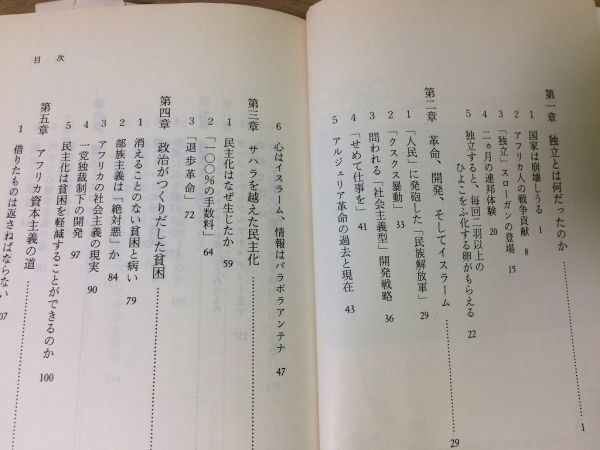 第一章 独立とは何だったのか……………1
1 国家は崩壊しうる 1
2 アフリカ人の戦争貢献 8
3 「独立」スローガンの登場 15
4 二ヵ月の連邦体験 20
5 独立すると、毎回一二羽以上の
ひよこをふ化する卵がもらえる 22
第二章 革命、開発、そしてイスラーム……………29
1 「人民」に発砲した「民族解放軍」 29
2 「クスクス暴動」 33
3 問われる「社会主義型」開発戦略 36
4 「せめて仕事を」 41
5 アルジェリア革命の過去と現在 43
6 心はイスラーム、情報はパラボラアンテナ 47
第三章 サハラを越えた民主化……………
1 民主化はなぜ生じたか 59
2 「一〇〇%の手数料」 64
3 「退歩革命」 72
第四章 政治がつくりだした貧困……………
1 消えることのない貧困と病い 79
2 部族主義は「絶対悪」か 84
3 アフリカの社会主義の現実 90
4 一党独裁制下の開発 97
5 民主化は貧困を軽減することができるのか 100
第五章 アフリカ資本主義の道……………
1 借りたものは返さねばならない 107
目次